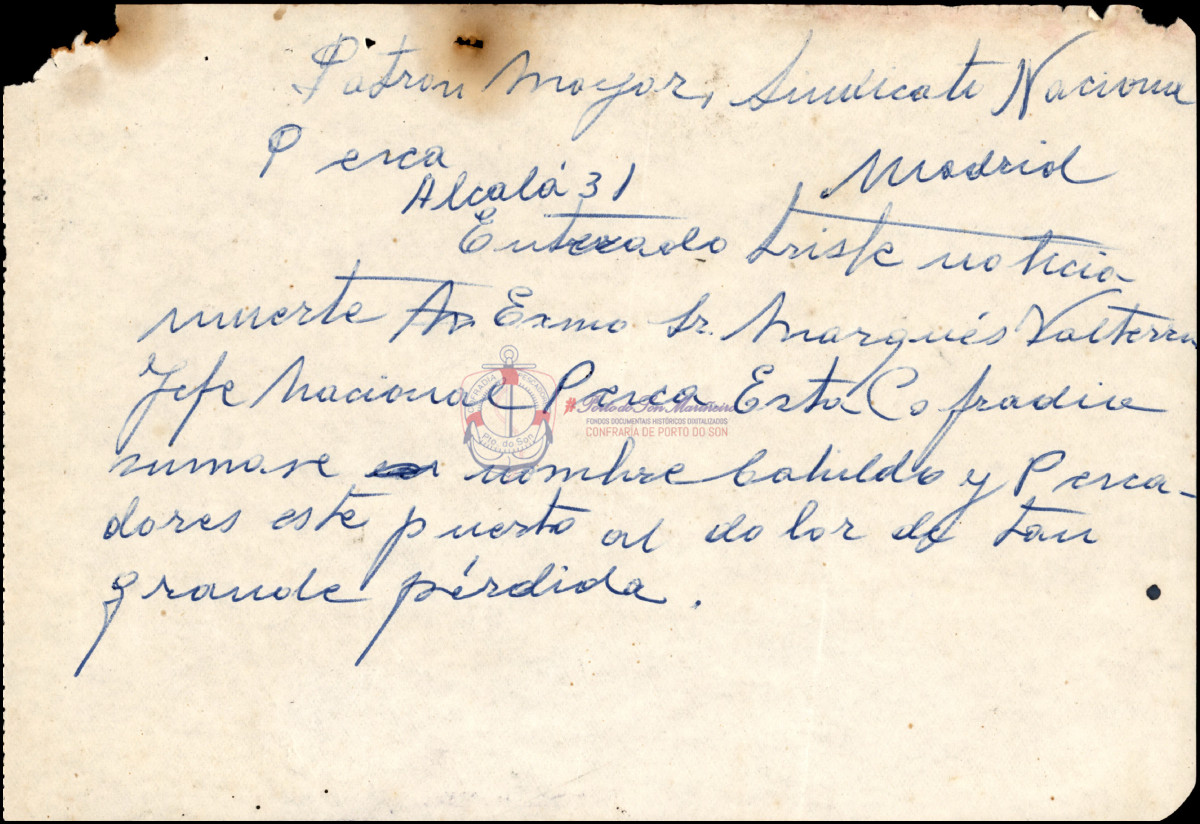 Patron Mayor, Sindicato Naciona
Pesca
Alcalá 31 Madrid
Enterado triste noticia
muerte Exmo Sr. Marqués Valterra
Jefe Nacional Pesca. Esta Cofradia
sumase nombre Cabildo y Pesca-
dores este puerto al dolor de tan
grande pérdida.
COFRADIA PESCADORES
Pto. do Son
#Porto do Son Mariñeiro
FONDOS DOCUMENTAIS HISTÓRICOS DIXITALIZADOS
CONFRARÍA DE PORTO DO SON